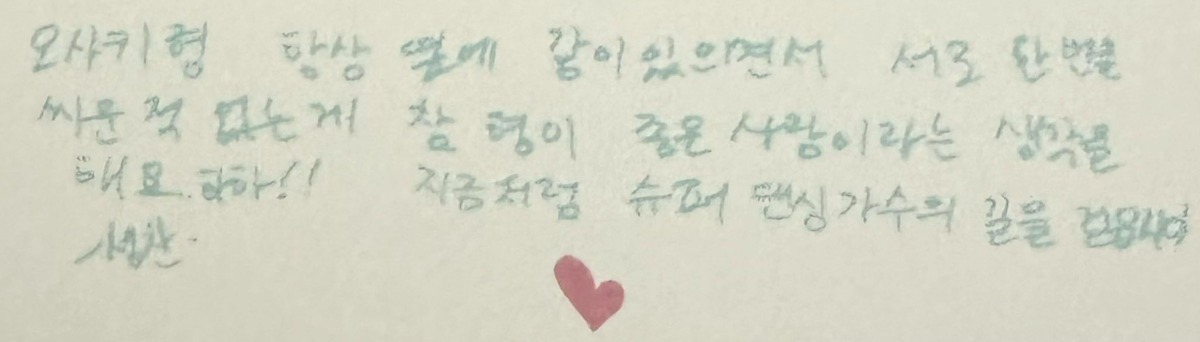 오사키형 항상 옆에 같이있으면서 서로 한번을
싸운적 없는게 참 형이 좋은 사람이라는 생각을
해요 하하!! 지금처럼 슈퍼 댄싱가수의 길을 걸읍시다